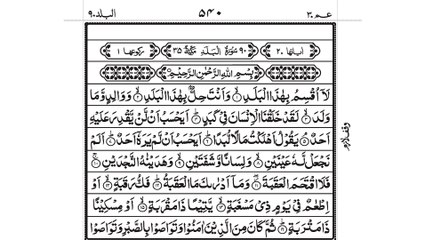 عـم ٣٠ ٥٤٠ البلد ٩٠
اٰيَاتُهَا ٢٠ ٩٠ سُوْرَةُ الْبَلَدِ مَكِّيَّةٌ ٣٥ رُكُوْعُهَا ١
بِسْمِ اللّٰهِ الرَّحْمٰنِ الرَّحِيْمِ
لَآ اُقْسِمُ بِهٰذَا الْبَلَدِ ۙ وَاَنْتَ حِلٌّۢ بِهٰذَا الْبَلَدِ ۙ وَوَالِدٍ وَّمَا
وَلَدَ ۙ لَقَدْ خَلَقْنَا الْاِنْسَانَ فِيْ كَبَدٍ ؕ اَيَحْسَبُ اَنْ لَّنْ يَّقْدِرَ عَلَيْهِ
اَحَدٌ ۘ يَقُوْلُ اَهْلَكْتُ مَالًا لُّبَدًا ؕ اَيَحْسَبُ اَنْ لَّمْ يَرَهٗۤ اَحَدٌ ؕ اَلَمْ
نَجْعَلْ لَّهٗ عَيْنَيْنِ ۙ وَلِسَانًا وَّشَفَتَيْنِ ۙ وَهَدَيْنٰهُ النَّجْدَيْنِ ۚ
فَلَا اقْتَحَمَ الْعَقَبَةَ ۖ وَمَاۤ اَدْرٰىكَ مَا الْعَقَبَةُ ؕ فَكُّ رَقَبَةٍ ۙ اَوْ
اِطْعٰمٌ فِيْ يَوْمٍ ذِيْ مَسْغَبَةٍ ۙ يَّتِيْمًا ذَا مَقْرَبَةٍ ۙ اَوْ مِسْكِيْنًا
ذَا مَتْرَبَةٍ ؕ ثُمَّ كَانَ مِنَ الَّذِيْنَ اٰمَنُوْا وَتَوَاصَوْا بِالصَّبْرِ وَتَوَاصَوْا
وقف لازم